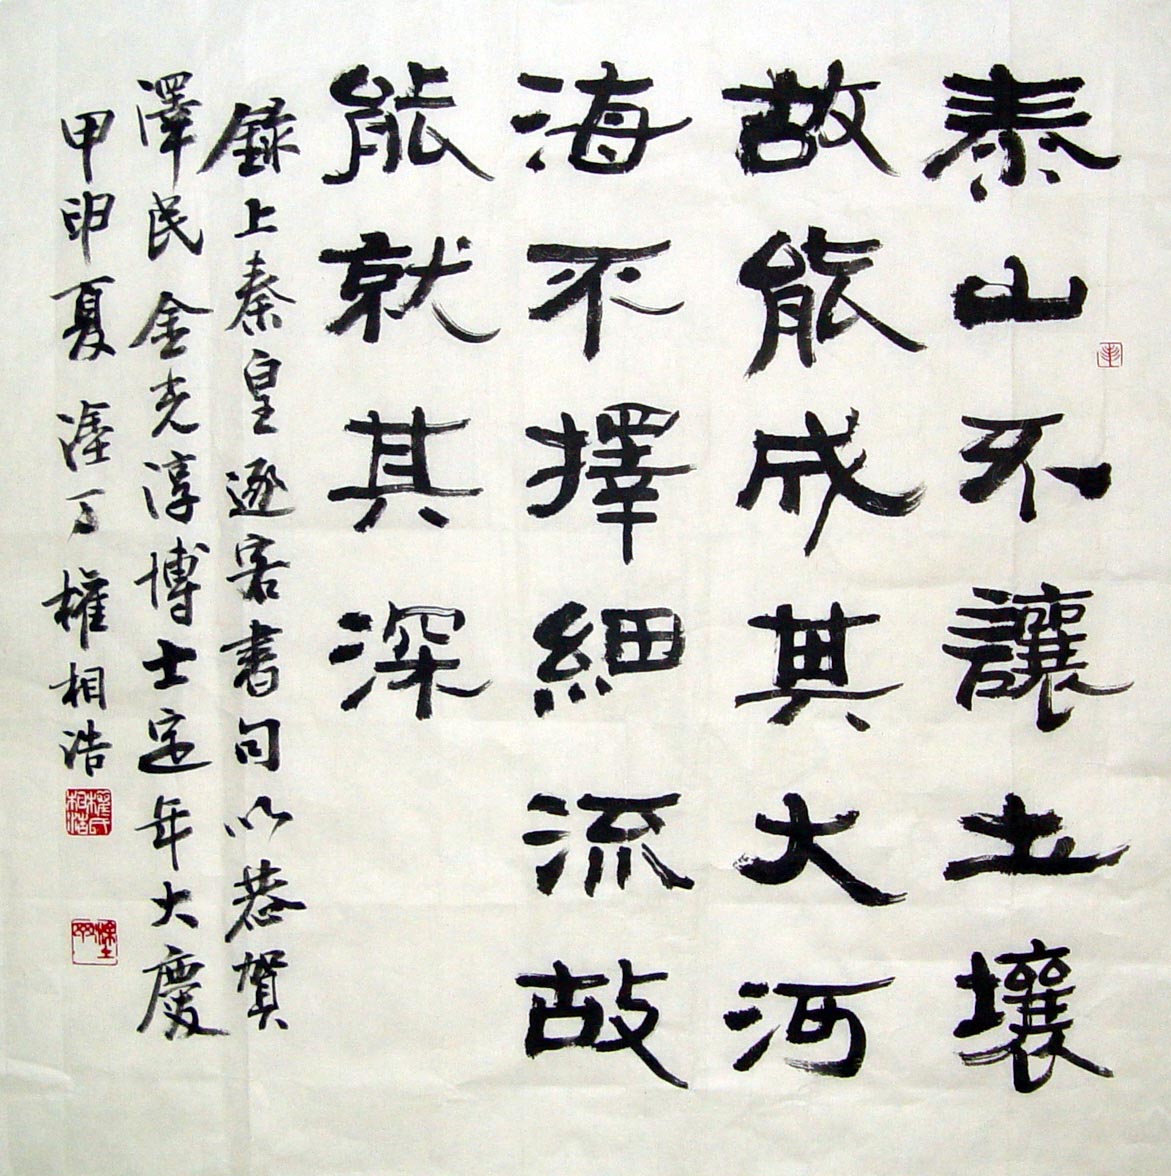 泰山不讓土壤
故能成其大河
海不擇細流故
能就其深
錄上秦皇逐客書句以恭賀
澤民金光淳博士定年大慶
甲申夏 丁權相浩
權氏相浩